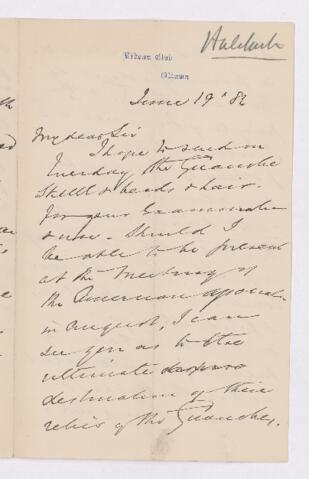 Rideau Club
Ottawa
June 19th 82
My dear Sir
I hope to send on
Tuesday the Guanche
Skull & beads & hair.
for your examination
& use. Should I
be able to be present
at the Meeting of
the American
in August, I can
see you as to the
ultimate
destination of these
relics of the Guanches.